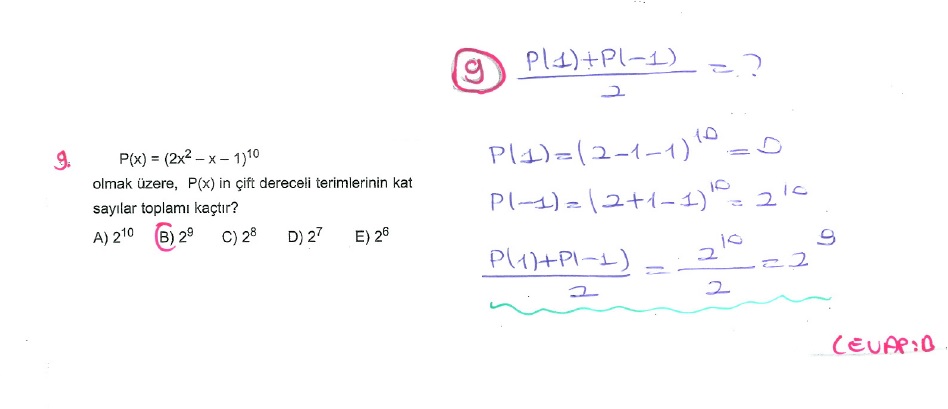 9.
P(x) = (2x² – x – 1)¹⁰
olmak üzere, P(x) in çift dereceli terimlerinin kat
sayılar toplamı kaçtır?
A) 2¹⁰ B) 2⁹ C) 2⁸ D) 2⁷ E) 2⁶
9 P(1)+P(-1) / 2 = ?
P(1)=(2-1-1)¹⁰ = 0
P(-1)=(2+1-1)¹⁰ = 2¹⁰
P(1)+P(-1) / 2 = 2¹⁰ / 2 = 2⁹
CEVAP:B